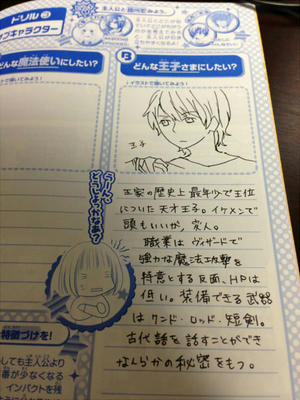 ドリル③
主人公と
どんな魔法使いにしたい?
B どんな王子さまにしたい?
イラストで描いてみよう!
王子
うーん、
どうしようかなあ?
王家の歴史上最年少で王位
についた天才王子。イケメンで
頭もいいが、変人。
職業はウィザードで
強力な魔法攻撃を
特意とする反面、HPは
低い。装備できる武器
はワンド・ロッド・短剣。
古代語を話すことができ
なんらかの秘密をもつ。
特徴づけを!
しても主人公より
番が少なくなる
インパクトを残